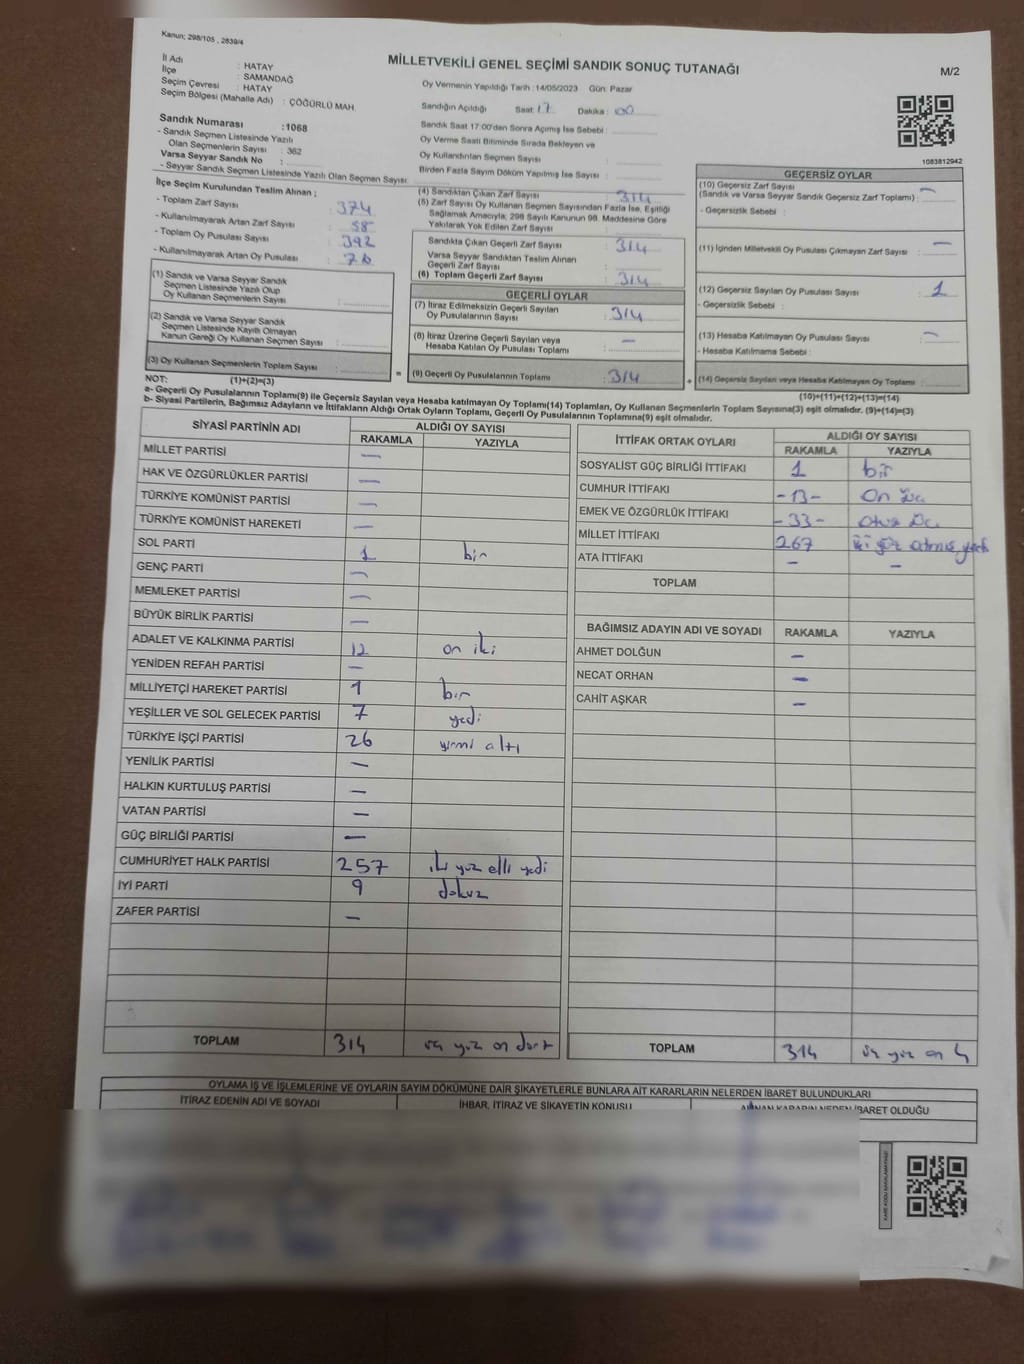 Kanun; 298/105 , 2839/4
MİLLETVEKİLİ GENEL SEÇİMİ SANDIK SONUÇ TUTANAĞI
M/2
İl Adı : HATAY
İlçe : SAMANDAĞ
Seçim Çevresi : HATAY
Seçim Bölgesi (Mahalle Adı) : ÇÖĞÜRLÜ MAH.
Sandık Numarası :1068
- Sandık Seçmen Listesinde Yazılı
Olan Seçmenlerin Sayısı : 362
Varsa Seyyar Sandık No :
- Seyyar Sandık Seçmen Listesinde Yazılı Olan Seçmen Sayısı:
Oy Vermenin Yapıldığı Tarih :14/05/2023 Gün: Pazar
Sandığın Açıldığı Saat: 17 Dakika : 00
Sandık Saat 17:00'den Sonra Açılmış İse Sebebi :
Oy Verme Saati Bitiminde Sırada Bekleyen ve
Oy Kullandırılan Seçmen Sayısı :
Birden Fazla Sayım Döküm Yapılmış İse Sayısı :
1083812942
İlçe Seçim Kurulundan Teslim Alınan ;
- Toplam Zarf Sayısı : 374
- Kullanılmayarak Artan Zarf Sayısı : 58
- Toplam Oy Pusulası Sayısı : 392
- Kullanılmayarak Artan Oy Pusulası :
(1) Sandık ve Varsa Seyyar Sandık
Seçmen Listesinde Yazılı Olup
Oy Kullanan Seçmenlerin Sayısı :
(2) Sandık ve Varsa Seyyar Sandık
Seçmen Listesinde Kayıtlı Olmayan
Kanun Gereği Oy Kullanan Seçmen Sayısı :
(3) Oy Kullanan Seçmenlerin Toplam Sayısı :
(4) Sandıktan Çıkan Zarf Sayısı : 314
(5) Zarf Sayısı Oy Kullanan Seçmen Sayısından Fazla İse, Eşitliği
Sağlamak Amacıyla, 298 Sayılı Kanunun 98. Maddesine Göre
Yakılarak Yok Edilen Zarf Sayısı :
Sandıkta Çıkan Geçerli Zarf Sayısı : 314
Varsa Seyyar Sandıktan Teslim Alınan
Geçerli Zarf Sayısı :
(6) Toplam Geçerli Zarf Sayısı : 314
GEÇERLİ OYLAR
(7) İtiraz Edilmeksizin Geçerli Sayılan
Oy Pusulalarının Sayısı : 314
(8) İtiraz Üzerine Geçerli Sayılan veya
Hesaba Katılan Oy Pusulası Toplamı : —
= (9) Geçerli Oy Pusulalarının Toplamı : 314
GEÇERSİZ OYLAR
(10) Geçersiz Zarf Sayısı
(Sandık ve Varsa Seyyar Sandık Geçersiz Zarf Toplamı) : —
- Geçersizlik Sebebi :
(11) İçinden Milletvekili Oy Pusulası Çıkmayan Zarf Sayısı : —
(12) Geçersiz Sayılan Oy Pusulası Sayısı : 1
- Geçersizlik Sebebi :
(13) Hesaba Katılmayan Oy Pusulası Sayısı : —
- Hesaba Katılmama Sebebi :
+ (14) Geçersiz Sayılan veya Hesaba Katılmayan Oy Toplamı :
NOT: (1)+(2)=(3)
(10)+(11)+(12)+(13)=(14)
a- Geçerli Oy Pusulaların Toplamı(9) ile Geçersiz Sayılan veya Hesaba katılmayan Oy Toplamı(14) Toplamları, Oy Kullanan Seçmenlerin Toplam Sayısına(3) eşit olmalıdır. (9)+(14)=(3)
b- Siyasi Partilerin, Bağımsız Adayların ve İttifakların Aldığı Ortak Oyların Toplamı, Geçerli Oy Pusulalarının Toplamına(9) eşit olmalıdır.
SİYASİ PARTİNİN ADI ALDIĞI OY SAYISI
RAKAMLA YAZIYLA
MİLLET PARTİSİ —
HAK VE ÖZGÜRLÜKLER PARTİSİ —
TÜRKİYE KOMÜNİST PARTİSİ —
TÜRKİYE KOMÜNİST HAREKETİ —
SOL PARTİ 1 bir
GENÇ PARTİ —
MEMLEKET PARTİSİ —
BÜYÜK BİRLİK PARTİSİ —
ADALET VE KALKINMA PARTİSİ 12 on iki
YENİDEN REFAH PARTİSİ —
MİLLİYETÇİ HAREKET PARTİSİ 1 bir
YEŞİLLER VE SOL GELECEK PARTİSİ 7 yedi
TÜRKİYE İŞÇİ PARTİSİ 26 yirmi altı
YENİLİK PARTİSİ —
HALKIN KURTULUŞ PARTİSİ —
VATAN PARTİSİ —
GÜÇ BİRLİĞİ PARTİSİ —
CUMHURİYET HALK PARTİSİ 257 iki yüz elli yedi
İYİ PARTİ 9 dokuz
ZAFER PARTİSİ —
TOPLAM 314 üç yüz on dört
İTTİFAK ORTAK OYLARI ALDIĞI OY SAYISI
RAKAMLA YAZIYLA
SOSYALİST GÜÇ BİRLİĞİ İTTİFAKI 1 bir
CUMHUR İTTİFAKI -13- On üç
EMEK VE ÖZGÜRLÜK İTTİFAKI -33- otuz üç
MİLLET İTTİFAKI 267 iki yüz atmış yedi
ATA İTTİFAKI — —
TOPLAM
BAĞIMSIZ ADAYIN ADI VE SOYADI RAKAMLA YAZIYLA
AHMET DOLĞUN —
NECAT ORHAN —
CAHİT AŞKAR —
TOPLAM 314 üç yüz on 4
OYLAMA İŞ VE İŞLEMLERİNE VE OYLARIN SAYIM DÖKÜMÜNE DAİR ŞİKAYETLERLE BUNLARA AİT KARARLARIN NELERDEN İBARET BULUNDUKLARI
İTİRAZ EDENİN ADI VE SOYADI İHBAR, İTİRAZ VE ŞİKAYETİN KONUSU ALINAN KARARIN NEDEN İBARET OLDUĞU